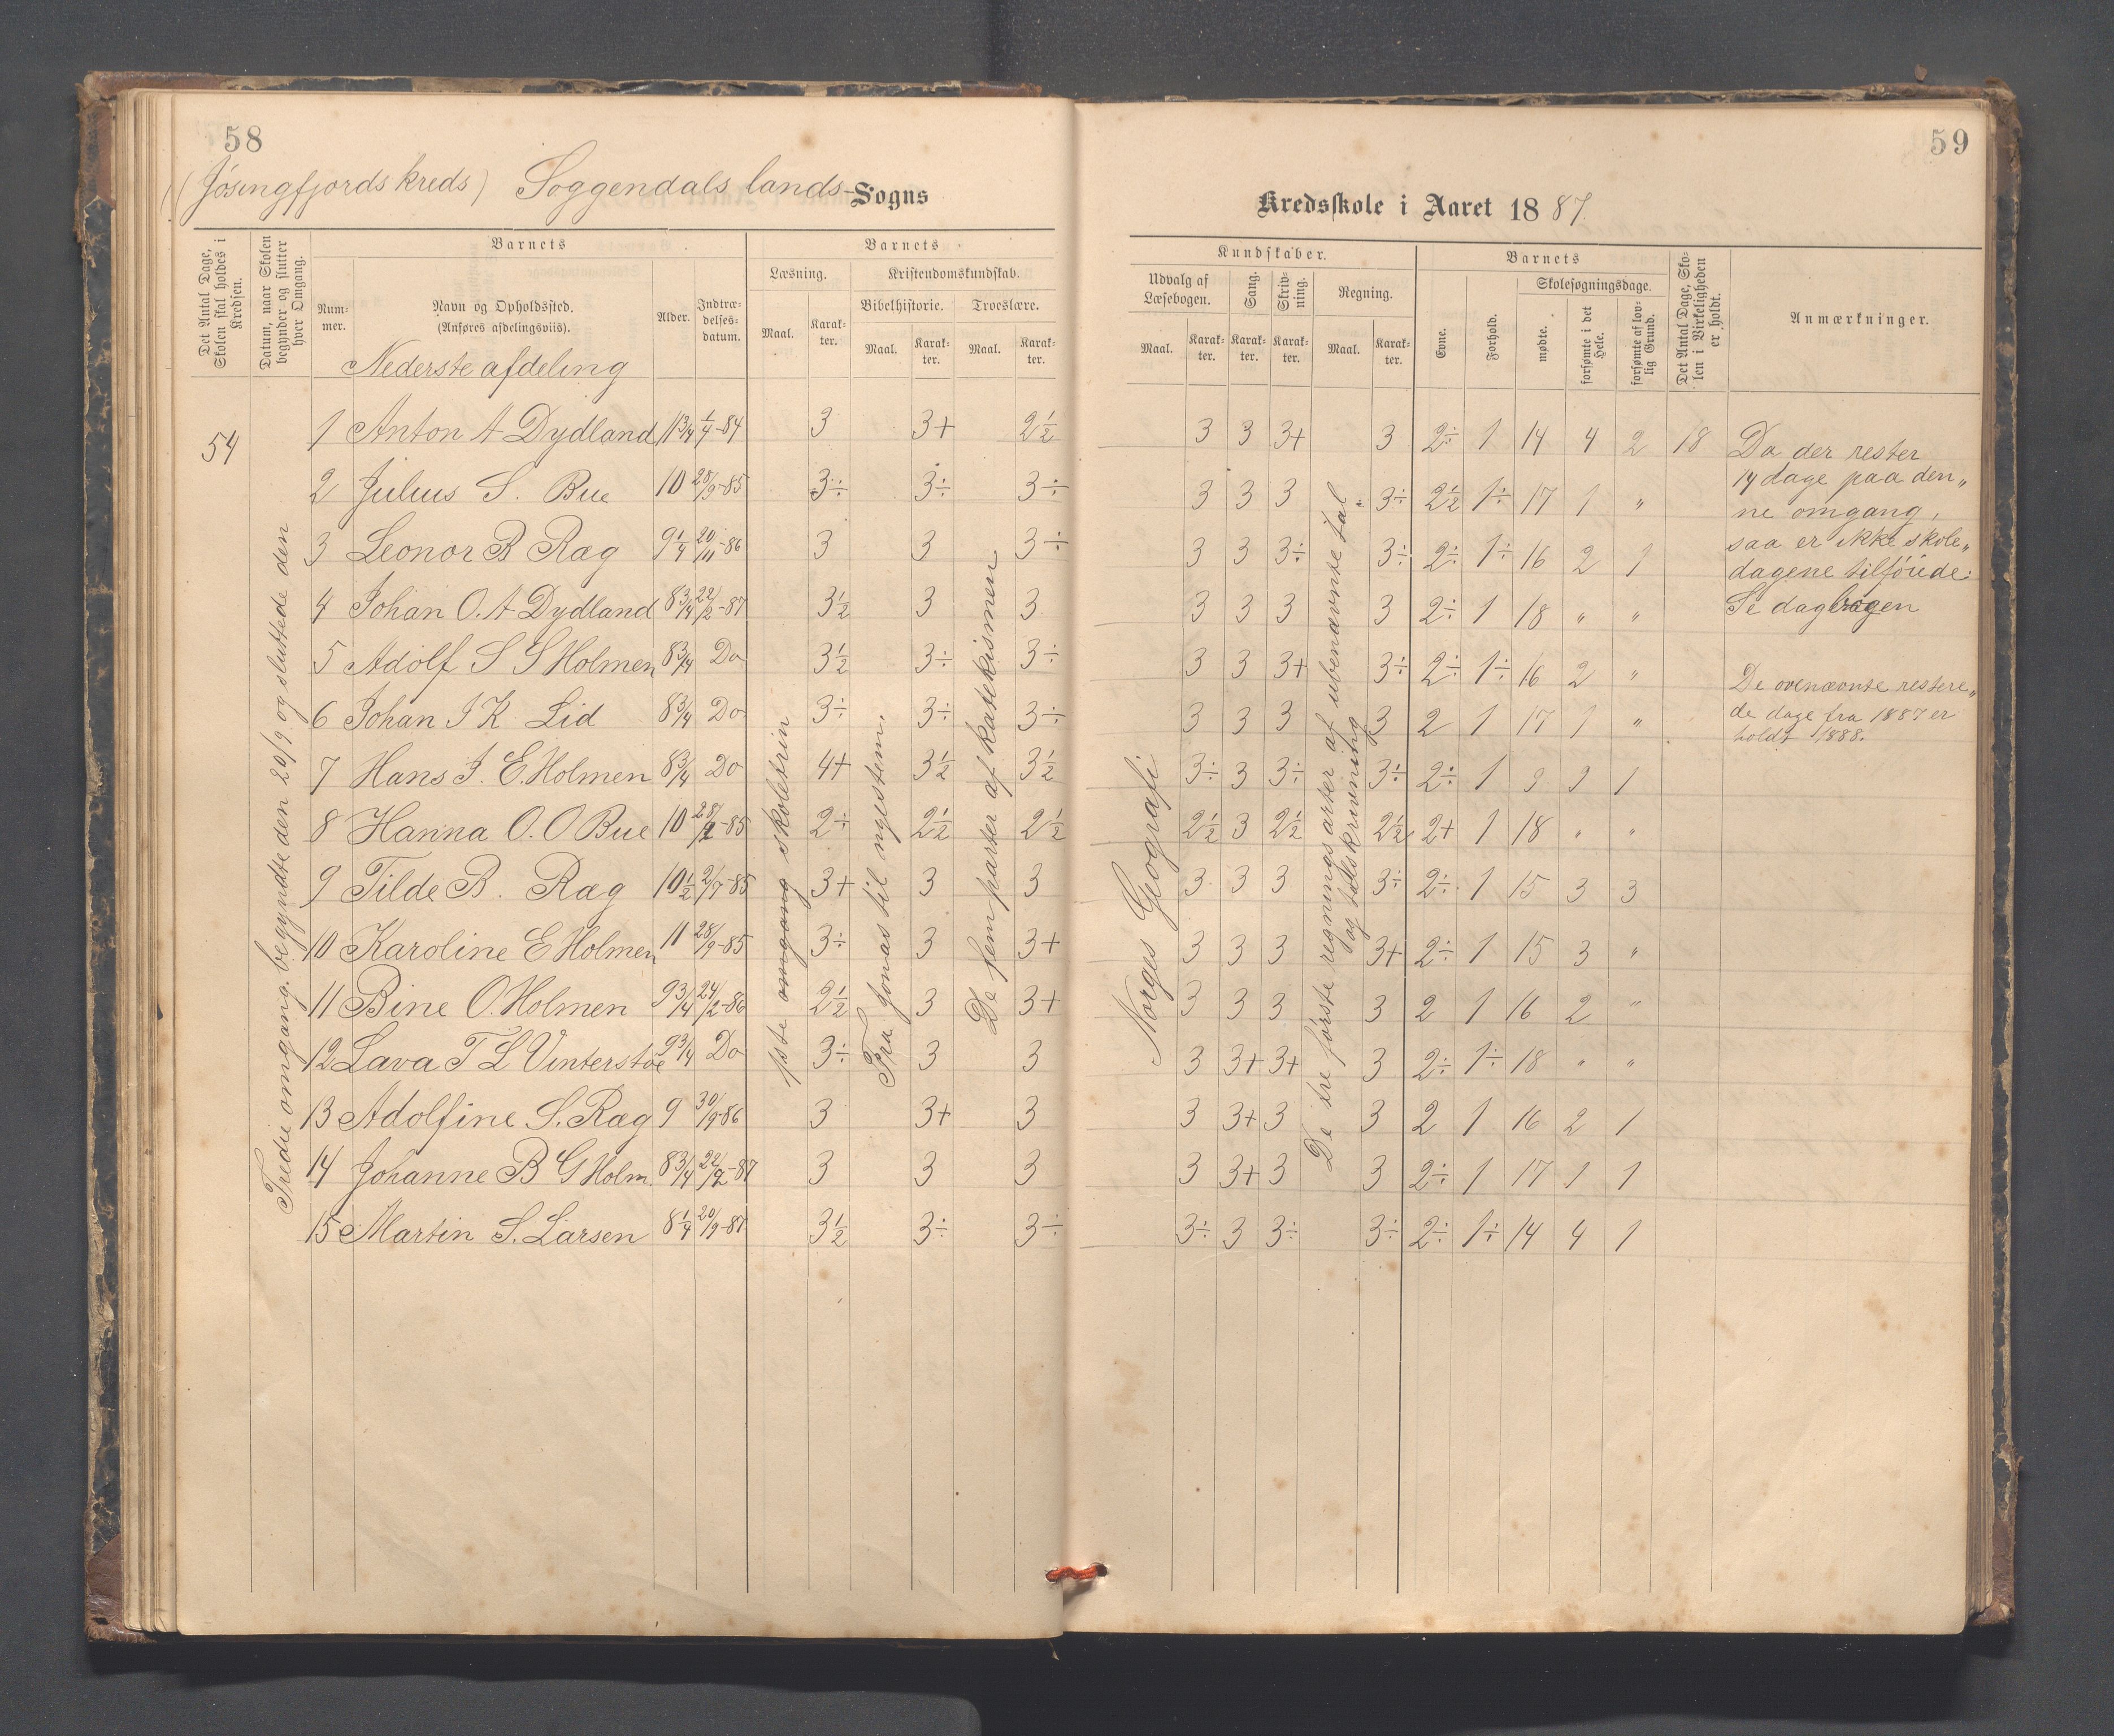 58
(Jøsingfjords kreds) Soggendals lands-Sogns
Det Antal Dage, Skolen skal holdes i Kredsen.
Datum, naar Skolen begynder og slutter hver Omgang.
Barnets
Num-mer.
Navn og Opholdssted.
(Anføres afdelingsviis).
Alder.
Indtræ-delses-datum.
Barnets
Læsning.
Kristendomskundskab.
Bibelhistorie.
Troeslære.
Maal. Karak-ter. Maal. Karak-ter. Maal. Karak-ter.
Nederste afdeling
54
Tredie omgang. begyndte den 20/9 og sluttede den
1 Anton A Dydland 11 3/4 1/4-84 3 3+ 2 1/2
2 Julius S. Bue 10 28/9-85 3÷ 3÷ 3÷
3 Leonor B Ræg 9 1/4 20/11-86 3 3 3÷
4 Johan O. A Dydland 8 3/4 22/2-87 3 1/2 3 3
5 Adolf S S Holmen 8 3/4 Do 3 1/2 3÷ 3÷
6 Johan J K Lid 8 3/4 Do 3÷ 3÷ 3÷
7 Hans J. E. Holmen 8 3/4 Do 4+ 3 1/2 3 1/2
8 Hanna O. O Bue 10 28/9-85 2÷ 2 1/2 2 1/2
9 Tilde B. Ræg 10 1/2 2/7-85 3+ 3 3
10 Karoline E Holmen 11 28/9-85 3÷ 3 3+
11 Bine O. Holmen 9 3/4 24/2-86 2 1/2 3 3+
12 Lava T L Vinterstøe 9 3/4 Do 3÷ 3 3
13 Adolfine S. Ræg 9 30/9-86 3 3+ 3
14 Johanne B G Holm. 8 3/4 22/2-87 3 3 3
15 Martin S. Larsen 8 1/4 20/9-87 3 1/2 3÷ 3÷
1ste omgang skoletrin
Fra Jonas til nytestem.
De fem parter af katekismen
59
Kredsskole i Aaret 1887.
Kundskaber.
Udvalg af Læsebogen.
Sang.
Skriv-ning.
Regning.
Maal. Karak-ter. Karak-ter. Karak-ter. Maal. Karak-ter.
Barnets
Evne.
Forhold.
Skolesøgningsdage.
mødte.
forsømte i det Hele.
forsømte af lov-lig Grund.
Det Antal Dage, Sko-len i Virkeligheden er holdt.
Anmærkninger.
3 3 3+ 3 2÷ 1 14 4 2 18
3 3 3 3÷ 2 1/2 1÷ 17 1 "
3 3 3÷ 3÷ 2÷ 1÷ 16 2 1
3 3 3 3 2÷ 1 18 " "
3 3 3+ 3÷ 2÷ 1÷ 16 2 "
3 3 3 3 2 1 17 1 "
3÷ 3 3÷ 3÷ 2÷ 1 9 9 1
2 1/2 3 2 1/2 2 1/2 2+ 1 18 " "
3 3 3 3÷ 2÷ 1 15 3 3
3 3 3 3+ 2÷ 1 15 3 "
3 3 3 3 2 1 16 2 "
3 3+ 3+ 3 2÷ 1÷ 18 " "
3 3+ 3 3 2 1 16 2 1
3 3+ 3 3 2÷ 1 17 1 1
3÷ 3 3÷ 3÷ 2÷ 1÷ 14 4 1
Norges Geografi
De tre første regningsarter af ubenævnte tal
og talskrivning
Da der rester
14 dage paa den„
ne omgang,
saa er ikke skole„
dagene tilføiede.
Se dagbogen
De ovenævnte restere„
de dage fra 1887 er
holdt 1888.